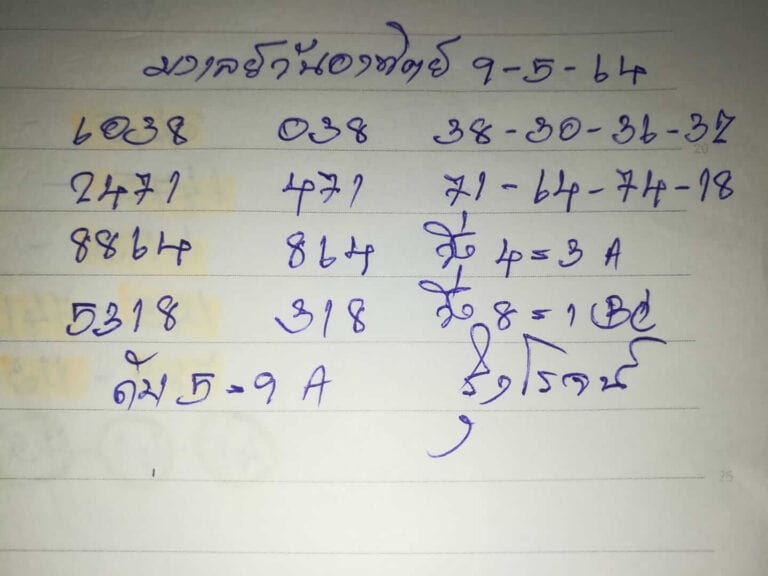 มาเลย์วันอาทิตย์ 9-5-64
6038 038 38-30-36-37
2471 471 71-64-74-18
8864 864 วิ่ง 4=3 A
5318 318 วิ่ง 8=1 BC
ดับ 5=9 A รุ่งโรจน์
20
25